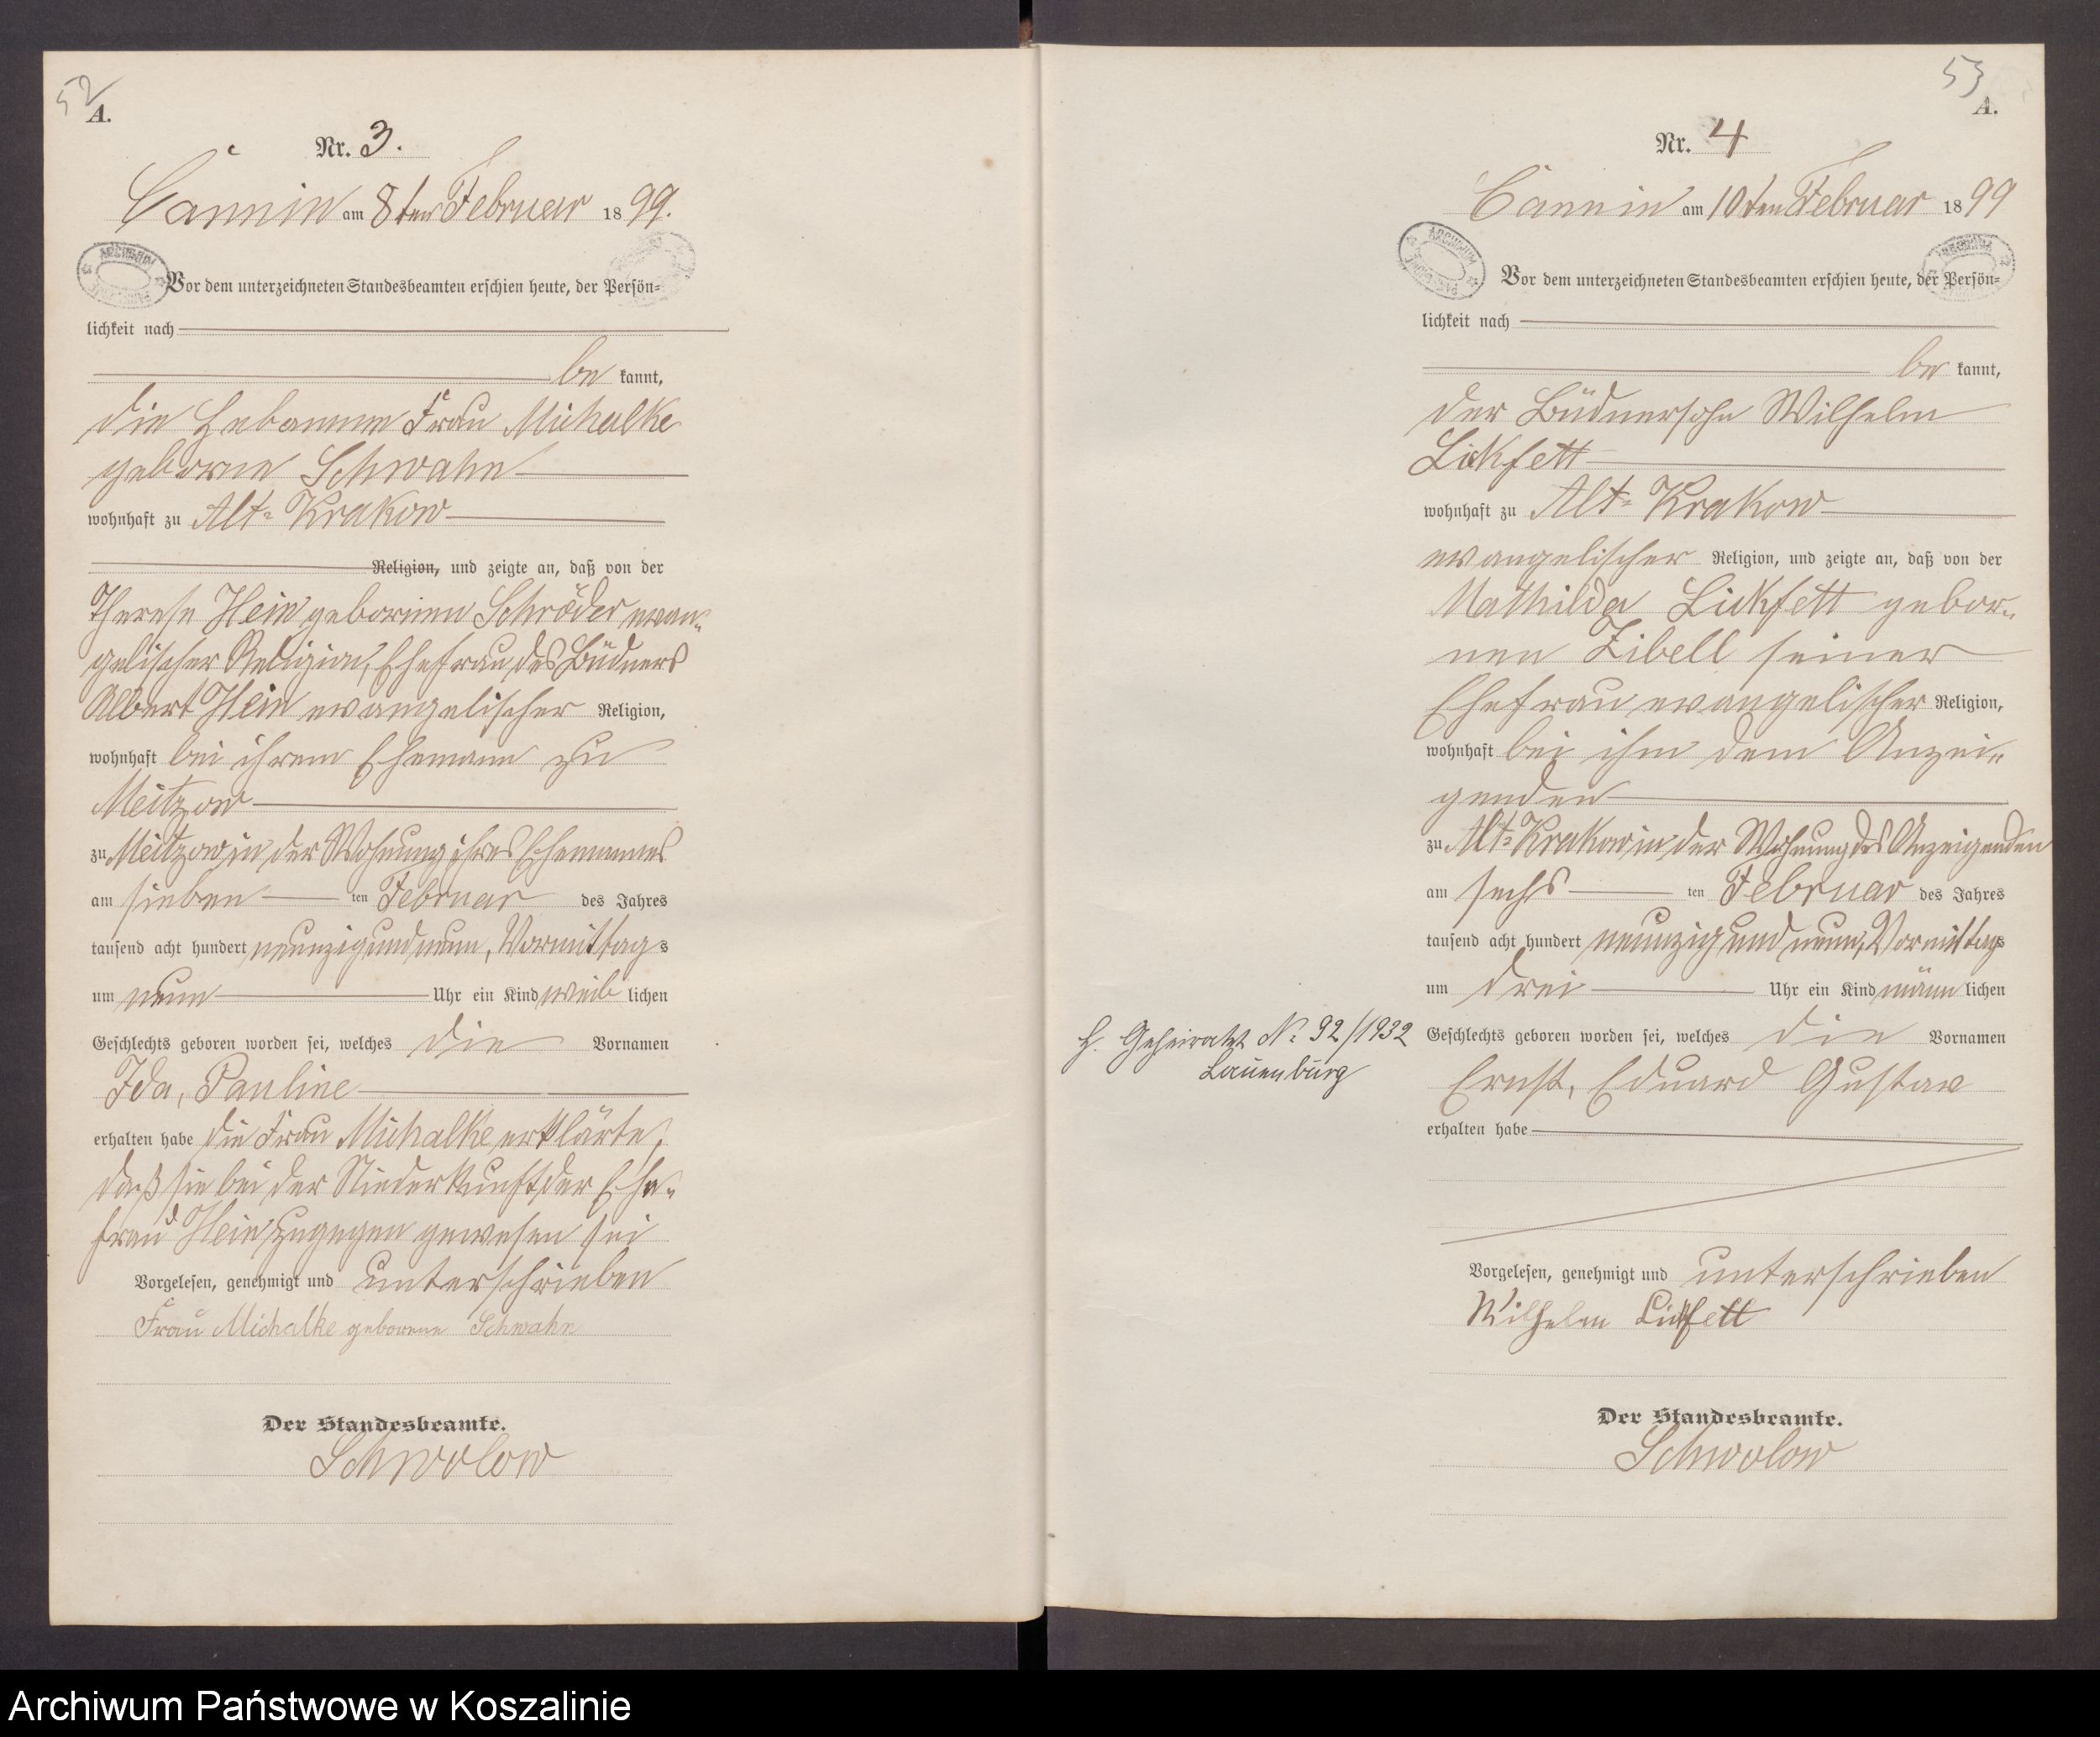 52
A.
Nr. 3.
Cannin am 8ten Februar 1899.
Vor dem unterzeichneten Standesbeamten erschien heute, der Persön-
lichkeit nach
be kannt,
die Hebamme Frau Michalke
geborne Schwahn
wohnhaft zu Alt- Krakow
Religion, und zeigte an, daß von der
Therese Hein geborenen Schröder evan-
gelischer Religion, Ehefrau des Büdners
Albert Hein evangelischer Religion,
wohnhaft bei ihrem Ehemann zu
Meitzow
zu Meitzow in der Wohnung ihres Ehemannes
am sieben ten Februar des Jahres
tausend acht hundert neunzig und neun, Vormittags
um neun Uhr ein Kind weiblichen
Geschlechts geboren worden sei, welches die Vornamen
Ida, Pauline
erhalten habe die Frau Michalke erklärte,
daß sie bei der Niederkunft der Ehe-
frau Hein zugegen gewesen sei
Vorgelesen, genehmigt und unterschrieben
Frau Michalke geborene Schwahn
Der Standesbeamte.
Schwolow
53
A.
Nr. 4
Cannin am 10ten Februar 1899
Vor dem unterzeichneten Standesbeamten erschien heute, der Persön-
lichkeit nach
be kannt,
der Büdnersohn Wilhelm
Lickfett
wohnhaft zu Alt- Krakow
evangelischer Religion, und zeigte an, daß von der
Mathilde Lickfett gebor-
nen Zibell seiner
Ehefrau evangelischer Religion,
wohnhaft bei ihm dem Anzei-
genden
zu Alt- Krakow in der Wohnung des Anzeigenden
am sechs ten Februar des Jahres
tausend acht hundert neunzig und neun, Vormittags
um drei Uhr ein Kind männlichen
Geschlechts geboren worden sei, welches die Vornamen
Ernst, Eduard Gustav
erhalten habe
H. Geheiratet Nr 92/1932
Lauenburg
Vorgelesen, genehmigt und unterschrieben
Wilhelm Lickfett
Der Standesbeamte.
Schwolow
Archiwum Państwowe w Koszalinie